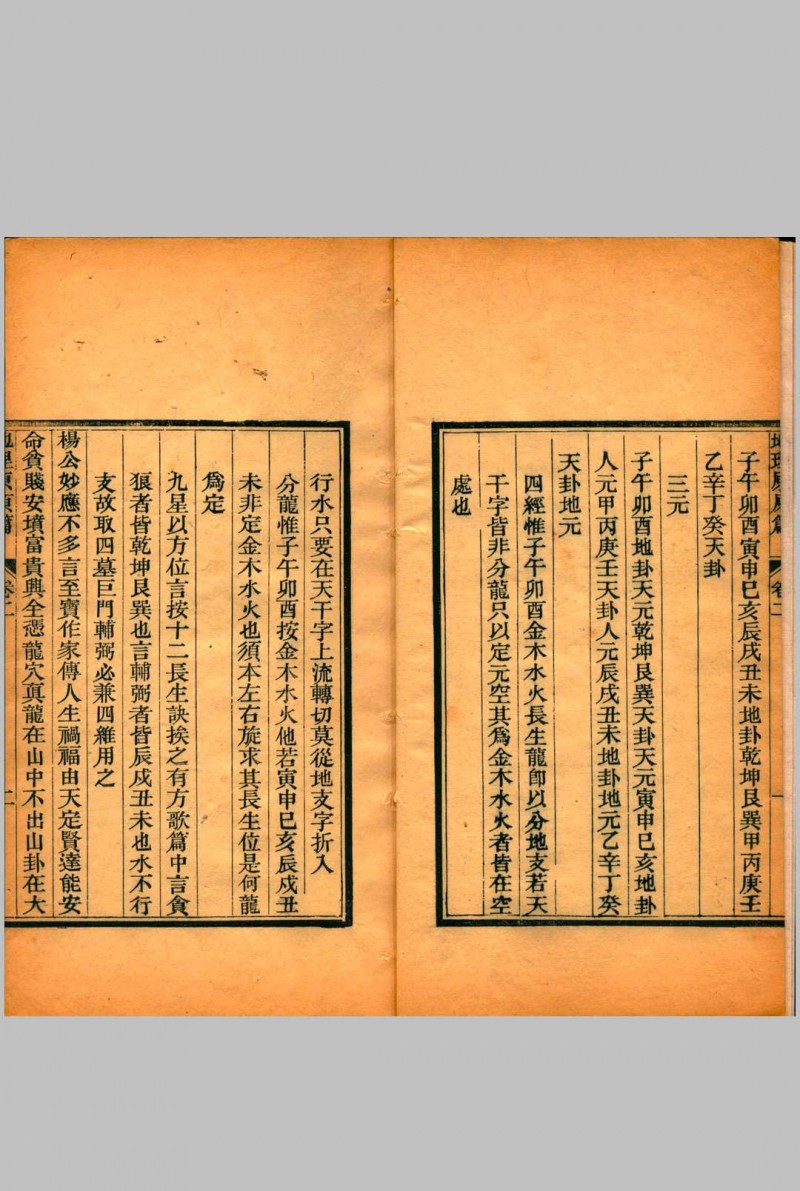 子午卯酉寅申巳亥辰戌丑未地卦乾坤艮巽甲丙庚壬
乙辛丁癸天卦
三元
子午卯酉地卦天元乾坤艮巽天卦天元寅申巳亥地卦
人元甲丙庚壬天卦人元辰戌丑未地卦地元乙辛丁癸
天卦地元
四經惟子午卯酉金木水火長生龍卽以分地支若天
干字皆非分龍只以定元空其爲金木水火者皆在空
處也
卷二
一
行水只要在天干字上流轉切莫從地支字折入
分龍惟子午卯酉按金木水火他若寅申巳亥辰戌丑
未非定金木水火也須本左右旋求其長生位是何龍
爲定
九星以方位言按十二長生訣挨之有方歌篇中言貪
狼者皆乾坤艮巽也言輔弼者皆辰戌丑未也水不行
支故取四墓巨門輔弼必兼四維用之
楊公妙應不多言至寶作家傳人生禍福由天定賢達能安
命貧賤安墳富貴興全憑龍穴眞龍在山中不出山卦在大
卷二
二